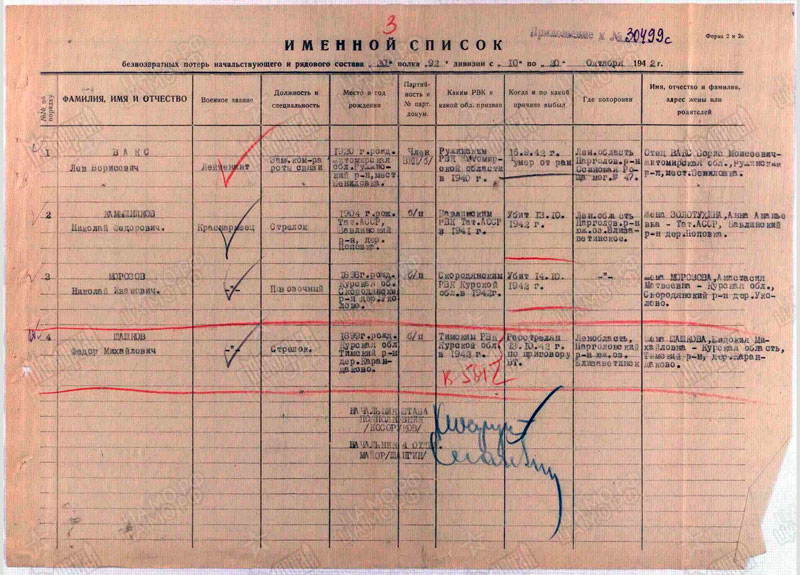 3
Приложение к № 30499с
Форма 2 и 2а
ИМЕННОЙ СПИСОК
безвозвратных потерь начальствующего и рядового состава полка 92 дивизии с "10" по "20" Октября 1942г.
№№ по порядку
ФАМИЛИЯ, ИМЯ И ОТЧЕСТВО
Военное звание
Должность и специальность
Место и год рождения
Партийность и № парт. докум.
Каким РВК и в какой обл. призван
Когда и по какой причине выбыл
Где похоронен
Имя, отчество и фамилия, адрес жены или родителей
1
ВАКС
Лев Борисович
Лейтенант
Зам.ком-ра роты связи
1920 г.рожд.
Член ВКП/б/
Ружинским РВК Житомирской области в 1940 г.
16.2.42 г. умер от ран
Лен.область Парголов.р-н Осиновая Роща мог.№ 47.
Отец ВАКС Борис Моисеевич-Житомирская обл., Ружинская р-н,мест.
2
Николай Федорович.
Красноармеец
Стрелок
1904 г.рож. Тат.АССР, Бавлинский р-н, дер. Поповка.
б/п
Бавлинским РВК Тат.АССР в 1941 г.
Убит 13.10. 1942 г.
Лен.область Парголов.р-н юж.ок.Елизаветинское.
Жена ЗОЛОТУХИНА, Анна - Тат.АССР, Бавлинский р-н дер.Поповка.
3
МОРОЗОВ
Николай Иванович.
-"-
1898г.рожд. Курская об. Скороднянский р-н дер.Уколово.
б/п
Скороднянским РВК Курской обл.в 1942г.
Убит 14.10. 1942 г.
-"-
Жена МОРОЗОВА, Анастасия Матвеевна - Курская обл., Скороднянский р-н дер.Уколово.
4
ПАШКОВ
Федор Михайлович
-"-
Стрелок.
1899г.рожд. Курская обл Тимский р-н
б/п
Тимским РВК Курской обл.
Расстрелян 13.10.42 г. по приговору ВТ.
Ленобласть, Парголовский р-н юж.ок. Елизаветинск
Жена ПАШКОВА, Михайловна - Курская область, Тимский р-н, дер.
НАЧАЛЬНИК ШТАБА
ПОДПОЛКОВНИК
НАЧАЛЬНИК 4 ОТД.
МАЙОР